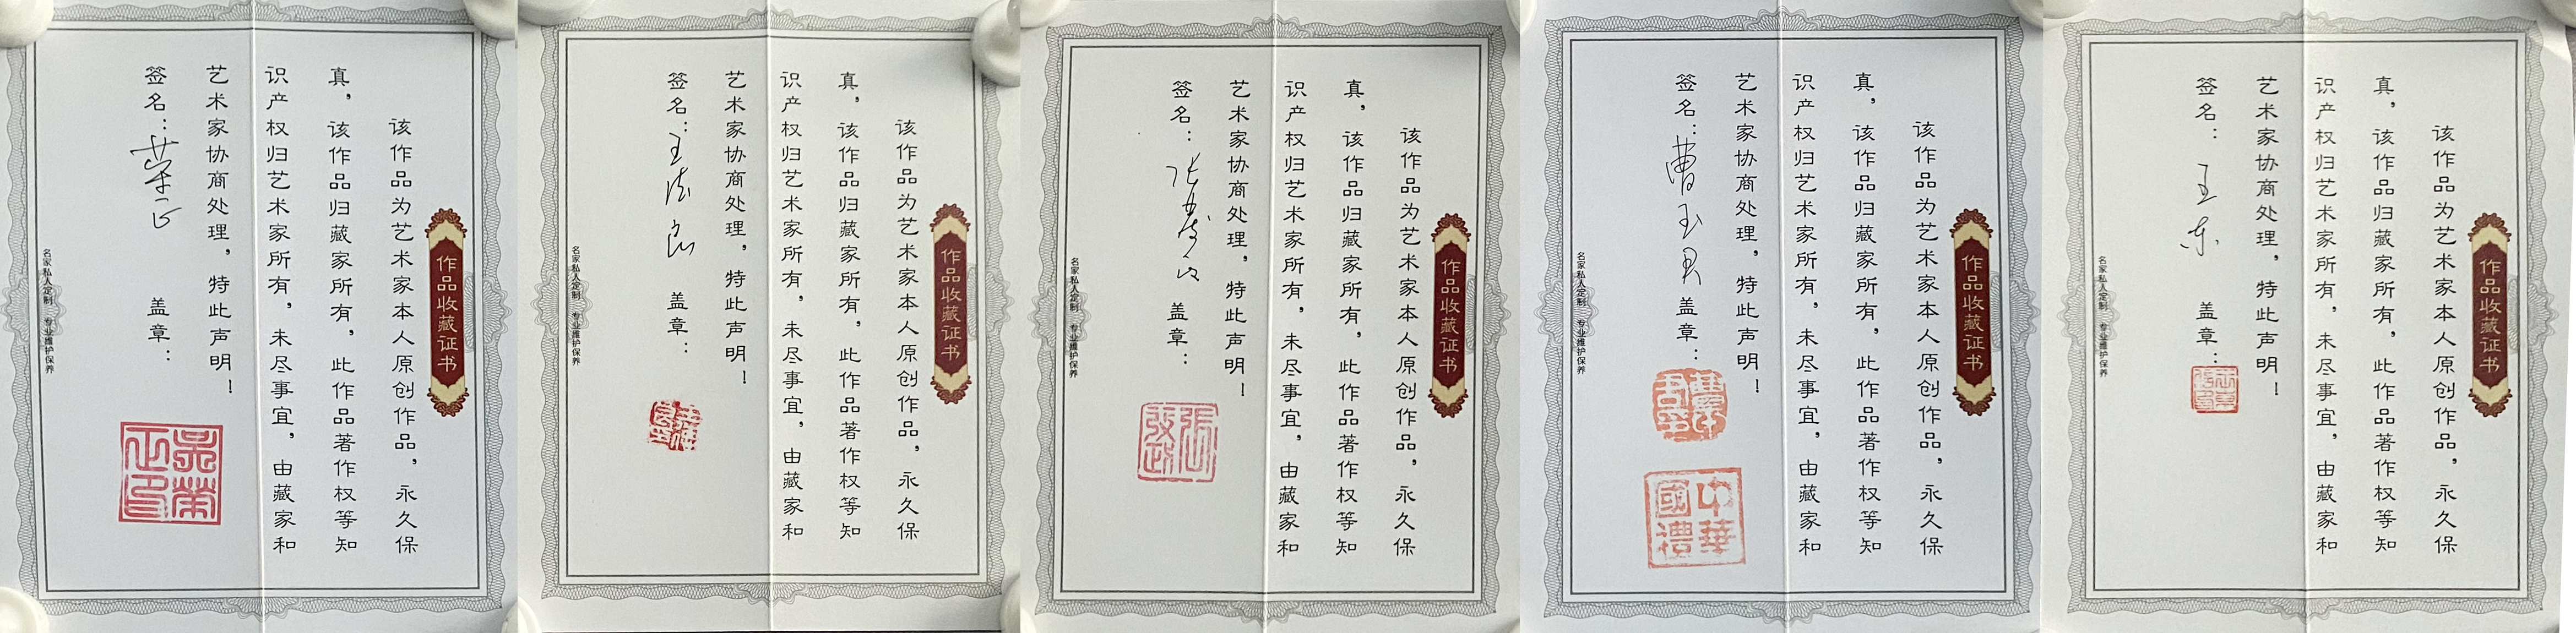 作品收藏证书
该作品为艺术家本人原创作品，永久保
真，该作品归藏家所有，此作品著作权等知
识产权归艺术家所有，未尽事宜，由藏家和
艺术家协商处理，特此声明！
签名：荣正 盖章：
吴荣正印
名家私人定制 专业维护保养
作品收藏证书
该作品为艺术家本人原创作品，永久保
真，该作品归藏家所有，此作品著作权等知
识产权归艺术家所有，未尽事宜，由藏家和
艺术家协商处理，特此声明！
签名：王 盖章：
名家私人定制 专业维护保养
作品收藏证书
该作品为艺术家本人原创作品，永久保
真，该作品归藏家所有，此作品著作权等知
识产权归艺术家所有，未尽事宜，由藏家和
艺术家协商处理，特此声明！
签名：张 盖章：
張
名家私人定制 专业维护保养
作品收藏证书
该作品为艺术家本人原创作品，永久保
真，该作品归藏家所有，此作品著作权等知
识产权归艺术家所有，未尽事宜，由藏家和
艺术家协商处理，特此声明！
签名：曹玉君 盖章：
中華國禮
名家私人定制 专业维护保养
作品收藏证书
该作品为艺术家本人原创作品，永久保
真，该作品归藏家所有，此作品著作权等知
识产权归艺术家所有，未尽事宜，由藏家和
艺术家协商处理，特此声明！
签名：王东 盖章：
名家私人定制 专业维护保养